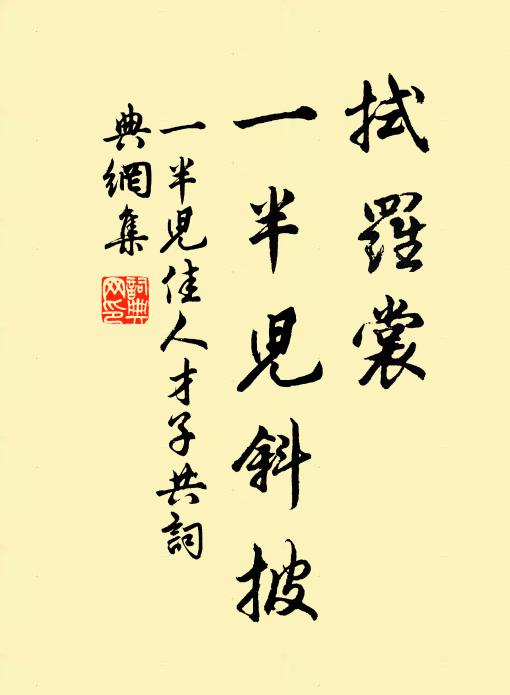 拭羅裳
一半兒斜披
一半兒佳人才子共詞
典網集
詞典網印